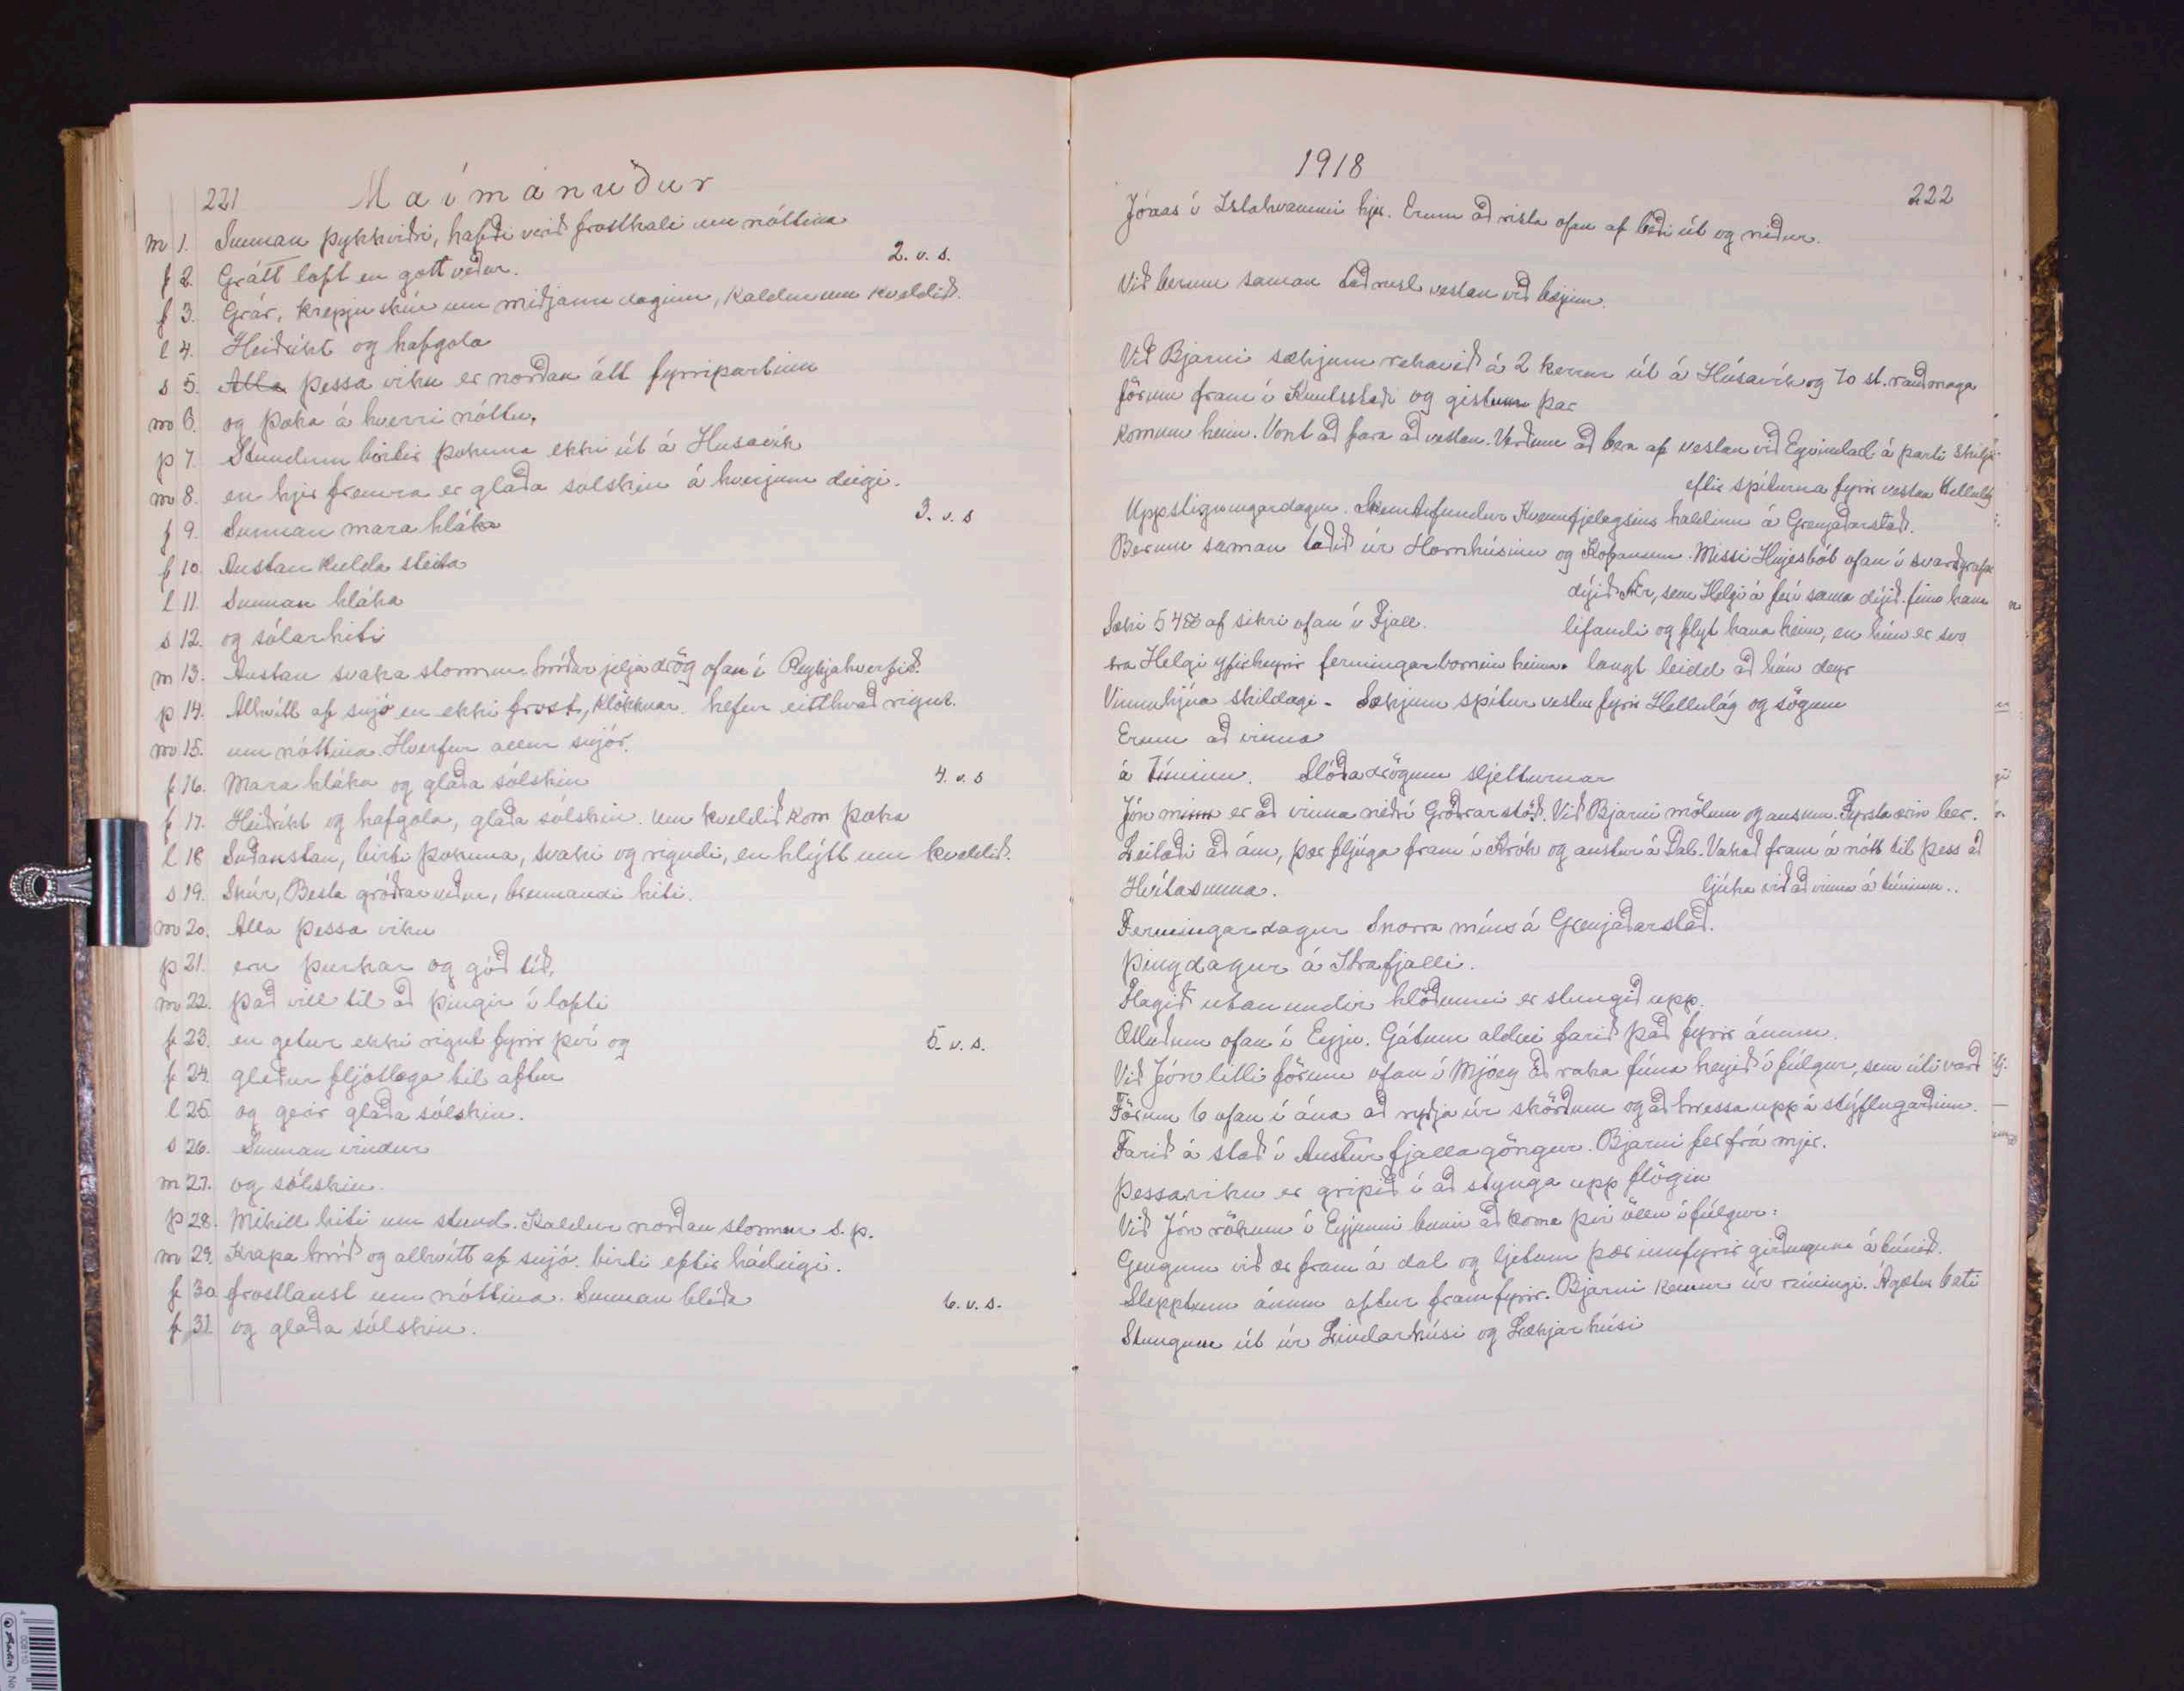 221 Maímánuður
m 1. Sunnan þykkviðri, hafði verið frostkali um nóttina
f 2. Grátt loft en gott veður. 2. v. s.
f 3. Grár, krepju skúr um miðjann daginn, Kaldur um kveldið.
l 4. Heiðríkt og hafgola
s 5. Alla þessa viku er norðan átt fyrripartinn
m 6. og þoka á hverri nóttu,
þ 7. Stundum birtir þokuna ekki út á Húsavík
m 8. en hjer fremra er glaða solskin á hverjum deigi.
f 9. Sunnan mara hláka 3. v. s
f 10. Austan kulda steita
l 11. Sunnan hláka
s 12. og sólarhiti
m 13. Austan svaka stormur. hríðar jelja drög ofan í Reykjahverfið.
þ 14. Allhvítt af snjó en ekki frost, Klökknar. hefur eitthvað rignt.
m 15. um nóttina. Hverfur allur snjór.
f 16. Mara hláka og glaða sólskin 4. v. s
f 17. Heiðríkt og hafgola, glaða sólskin. um kveldið kom þoka
l 18 Suðaustan, birti þokuna, svaki og rigndi, en hlýtt um kveldið.
s 19. Skúr, Besta gróðrar veður, brennandi hiti.
m 20. Alla þessa viku
þ 21. eru þurkar og góð tíð,
m 22. það vill til að þyngir í lofti
f 23. en getur ekki rignt fyrir því og 5. v. s.
f 24. gleður fljótlega til aftur
l 25. og gerir glaða sólskin.
s 26. Sunnan vindur
m 27. og sólskin.
þ 28. Mikill hiti um stund. Kaldur norðan stormur s. p.
m 29. Krapa hríð og allhvítt af snjó. birti eftir hádeigi.
f 30 frostlaust um nóttina. Sunnan blíða
f 31 og glaða sólskin. 6. v. s.
1918 222
Jónas í hjer. Erum að rista ofan af beði út og niður.
Við berum saman taðrusl vestan við bæjinn.
Við Bjarni sækjum rekavið á 2 kerrur út á Húsavík og 70 st. rauðmaga
förum fram í Knutsstaði og gistum þar
komum heim. Vont að fara að vestan. Verðum að bera af vestan við á parti Skilja
eftir spíturna fyrir vestan Hellulág
Uppstigningardagur. Skemtifundur Kvennfjelagsins haldinn á Grenjaðarstað.
Berum saman taðið úr Hornhúsinu og Kofanum. Missi ofan í svarðgrafa
dýið. Ær, sem Helgi á fer í sama dýið. finn hana
Sæki 54 ℔ af sikri ofan í Fjall. lifandi og flyt hana heim, en hún er svo
sra Helgi yfirheyrir fermingarbornin heima. langt leidd að hún deyr
Vinnuhjúa skildagi. Sækjum spítur vestur fyrir Hellulág og sögum
Erum að vinna
á túninu. Slóðadrögum sljetturnar
Jón minn er að vinna niðrí Gróðrarstöð. Við Bjarni mölum og ausum. Fyrsta ærin ber.
Leitaði að ám, þær fljúga fram í Krók og austur á Dal. Vakað fram á nótt til þess að
Hvítasunna. ljúka við að vinna á túninu..
Fermingardagur Snorra míns á Grenjaðarstað.
Þingdagur á Ytrafjalli.
Flagið utanundir hlöðunni er stungið upp.
ofan í Eyju. Gátum aldrei farið það fyrir ánum.
Við Jón litli förum ofan í Mjóey að raka fúna heyið í fúlgur, sem úti varð
Förum 6 ofan í ána að ryðja úr skörðum og að hressa uppá stýflugarðinn.
Farið á stað í Austurfjallagöngur. Bjarni fer frá mjer.
Þessa viku er gripið í að stynga upp flögin
Við Jón rökum í Eyjunni búnir að koma því öllu í fúlgur.
Gengum við ær fram á dal og ljetum þær innfyrir girðinguna á túnið.
Slepptum ánum aftur framfyrir. Bjarni kemur úr rúningi. Ágætur bati
Stungum út úr Lindarhúsi og Lækjarhúsi